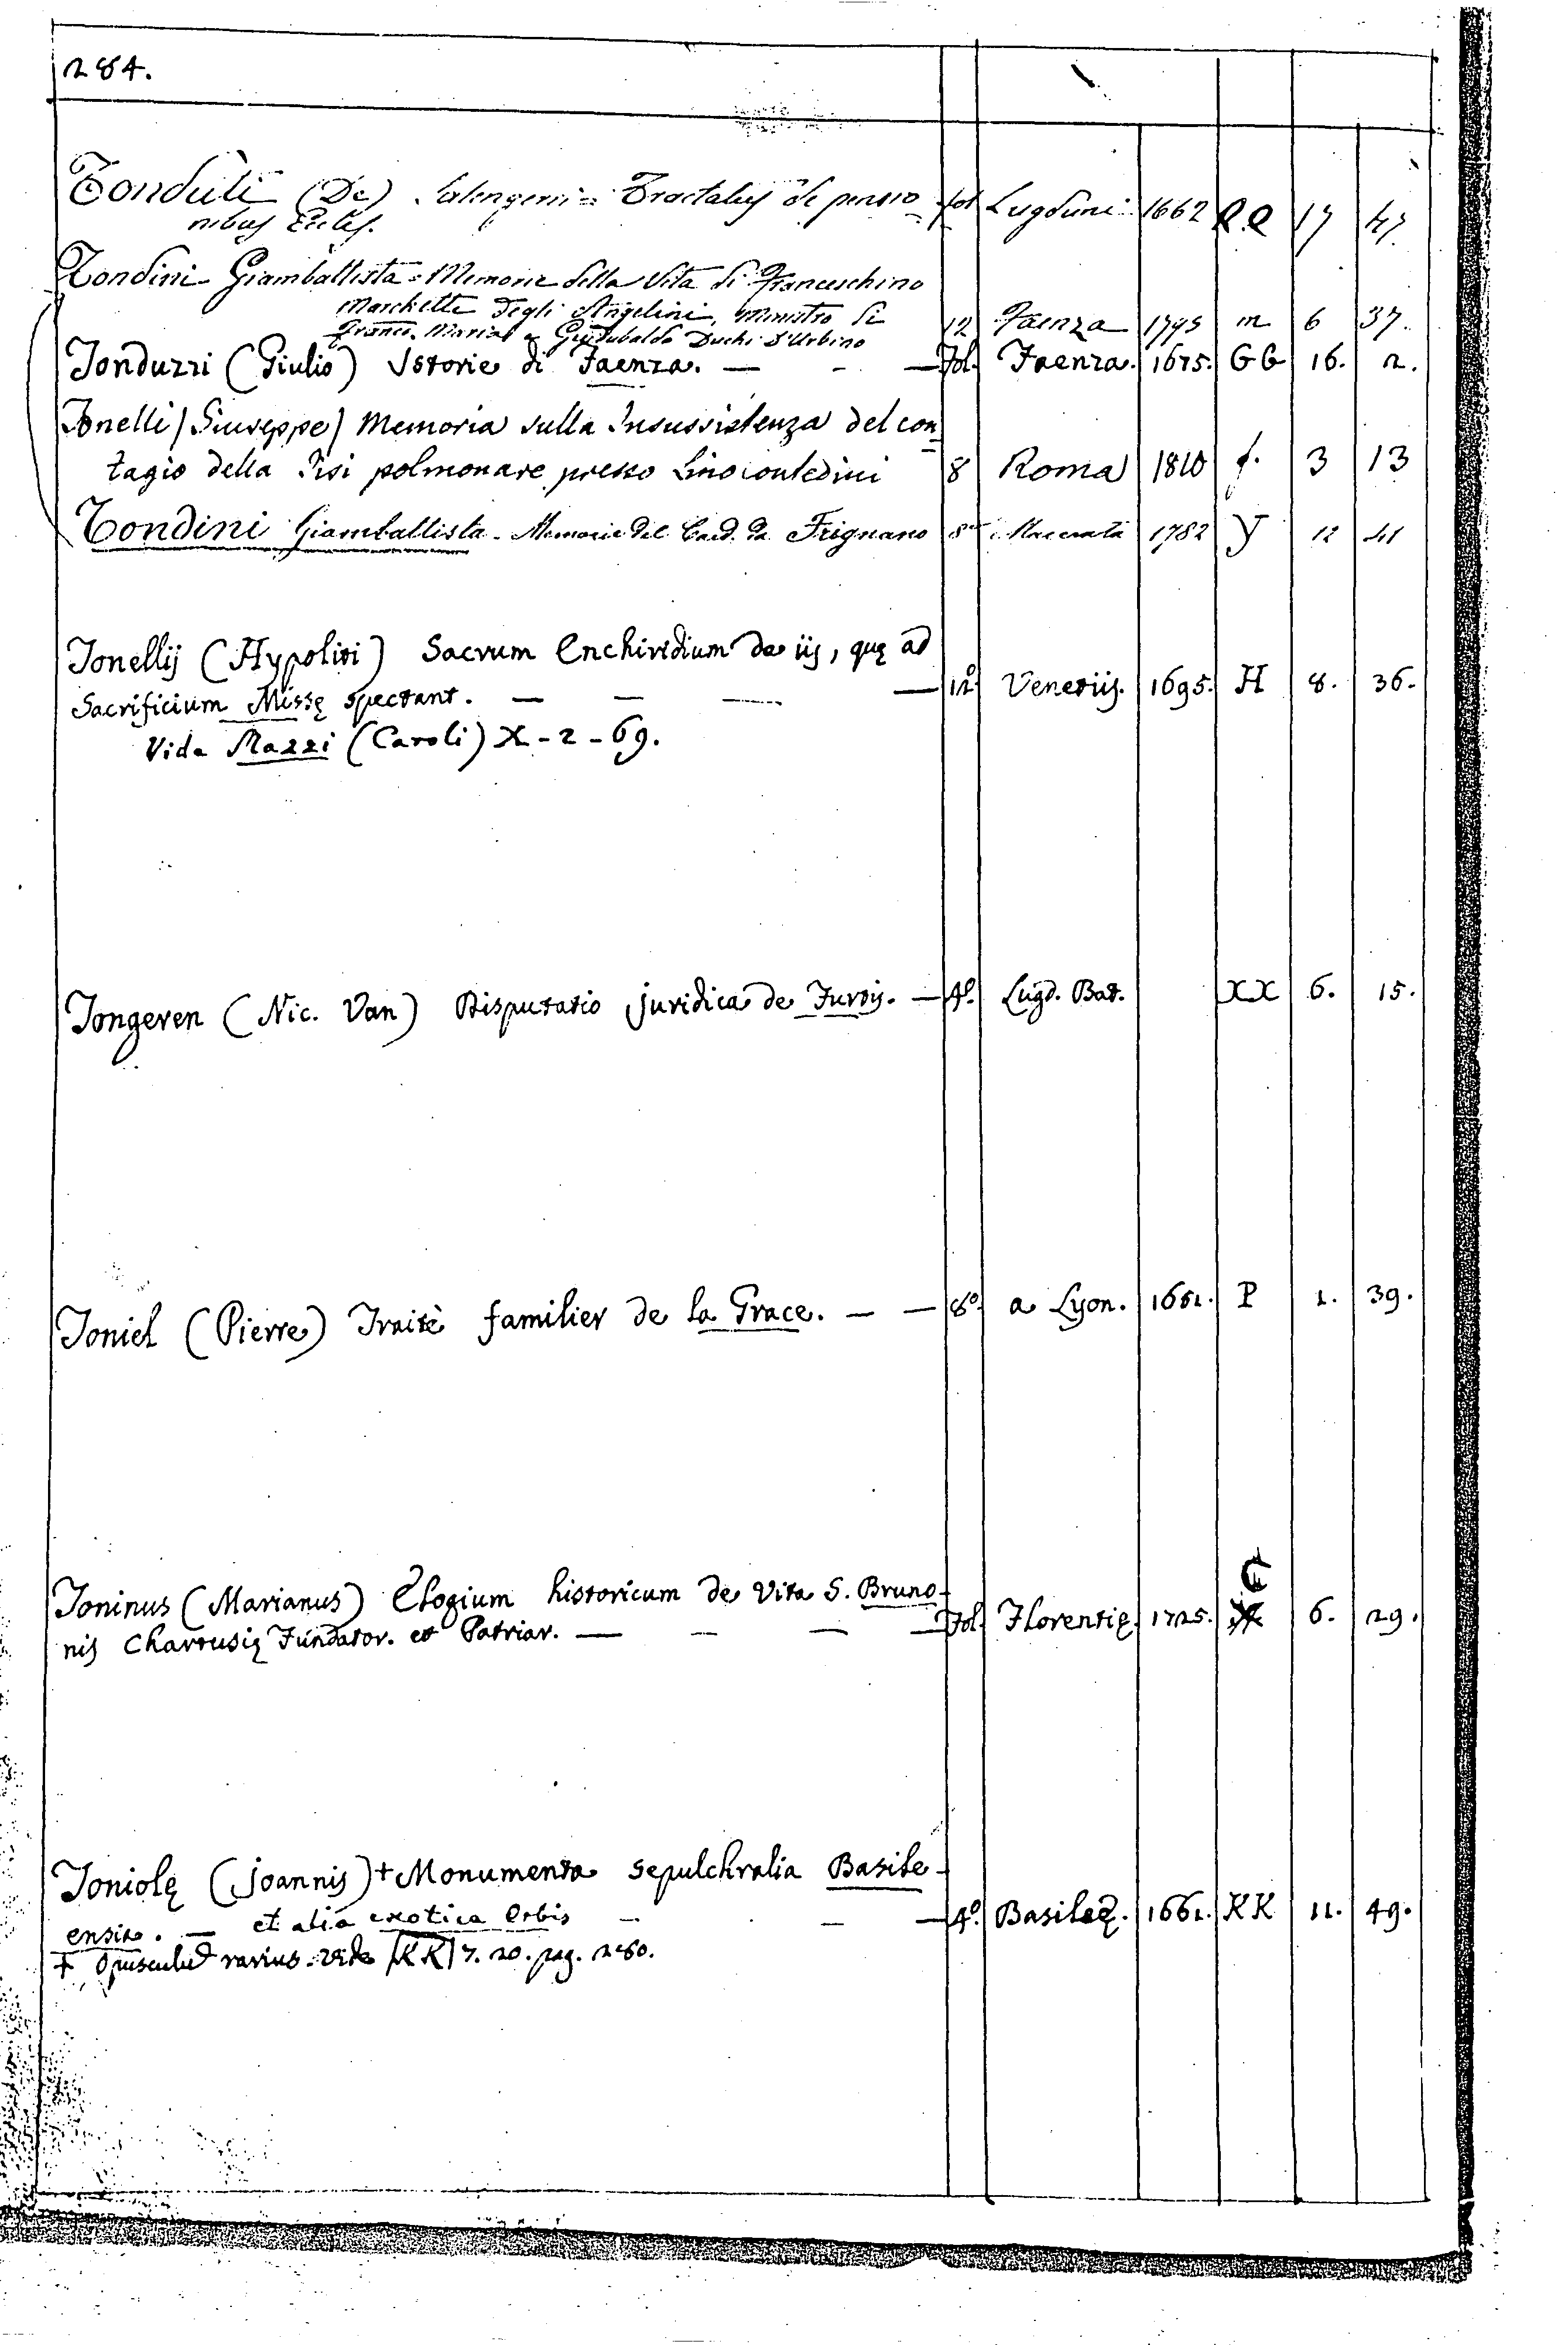 284.
Tonduti (De) Salengerii = Tractatus de pensio- fol Lugduni 1662 R.R 17 47.
nibus Eccles.
Tondini Giamballista = Memorie della Vita di Franceschino
Marchette degli Angelini, ministro di
Franco. Maria e Guidubaldo Duchi d'Urbino 12 Faenza 1795 m 6 37.
Tonduzzi (Giulio) Istorie di Faenza. — - — Fol. Faenza. 1675. GG 16. 2.
Tonelli (Giuseppe) Memoria sulla Insussistenza del con=
tagio della Tisi polmonare presso Lino contedini 8 Roma 1810 f. 3 13
Tondini Giamballista - Memorie del Card. da Frignano 8° Macerata 1782 Y 12 41
Tonellij (Hypoliti) Sacrum Enchiridium de iis, quę ad
Sacrificium Missę spectant. — — — — 12° Venetiis. 1695. H 8. 36.
Vide Mazzi (Caroli) X - 2 - 69.
Tongeren (Nic. Van) Disputatio juridica de Furtis. — 4°. Lugd. Bat. XX 6. 15.
Toniel (Pierre) Traitè familier de la Grace. — — 8°. a Lyon. 1662. P 1. 39.
Toninus (Marianus) Elogium historicum de Vita S. Bruno-
nis Chartusię Fundator. et Patriar. — — — — Fol. Florentię. 1725. C 6. 29.
Toniolę (Joannis) + Monumenta sepulchralia Basile-
ensia. — et alia exotica Orbis - — — 4°. Basileę. 1661. KK 11. 49.
+ Opusculum rarius. vide KK 7. 20. pag. 280.